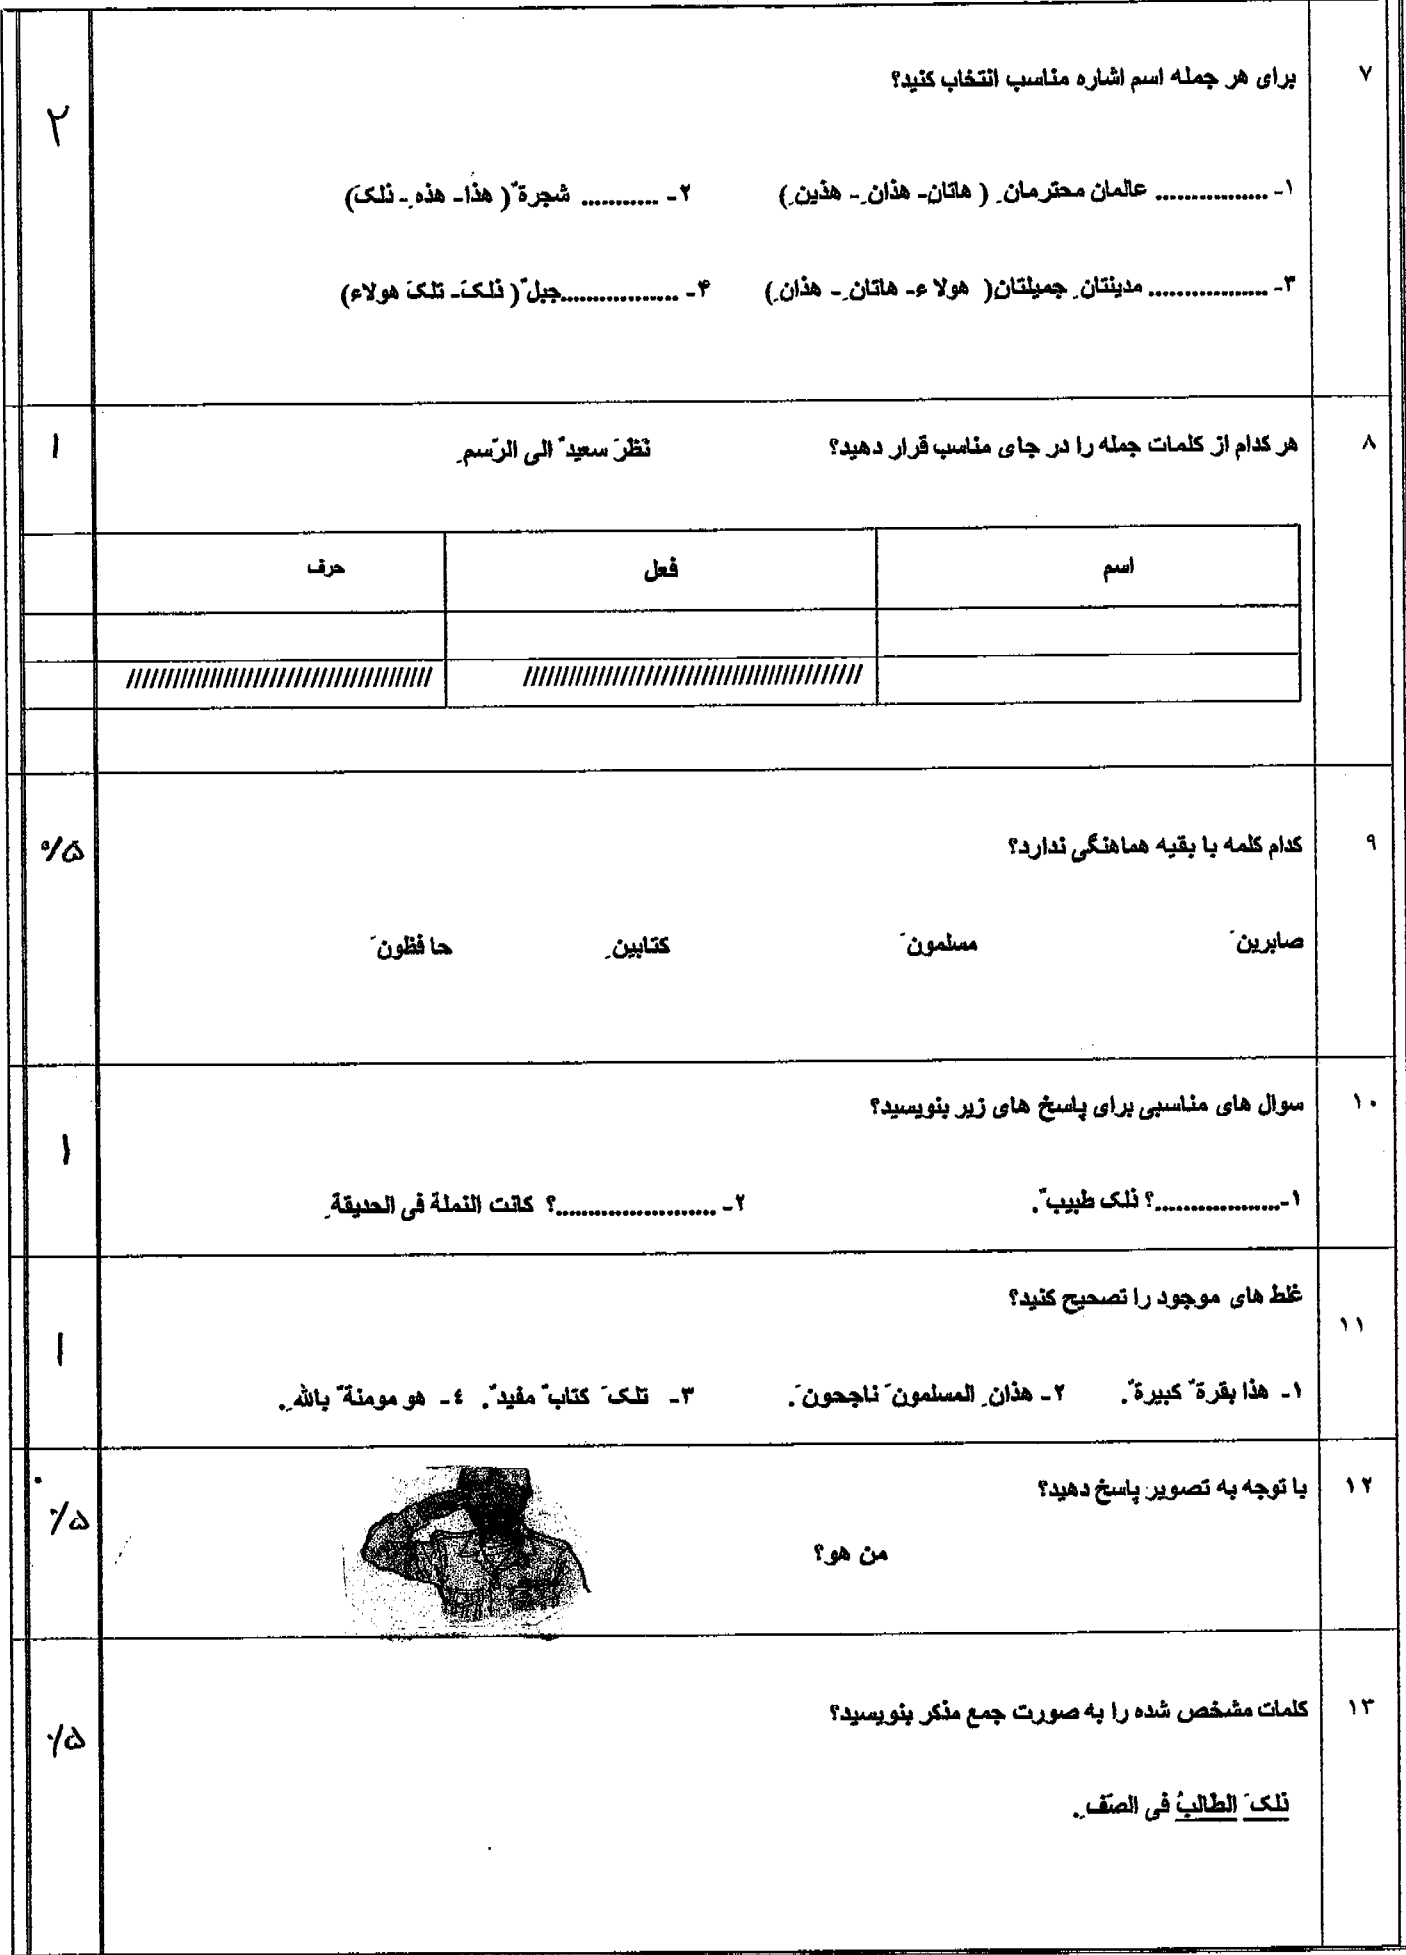 ۷ برای هر جمله اسم اشاره مناسب انتخاب کنید؟
۲
۱- ................ عالمان محترمانِ ( هاتان- هذانِ - هذینِ ) ۲- ........... شجرةٌ ( هذا- هذهِ - ذلکَ)
۳- ................. مدینتانِ جمیلتانِ( هولاء- هاتانِ - هذانِ ) ۴- .................جبلٌ ( ذلکَ- تلکَ هولاء)
۸ هر کدام از کلمات جمله را در جای مناسب قرار دهید؟ نَظَرَ سعیدٌ الی الرّسمِ ۱
اسم فعل حرف
۹ کدام کلمه با بقیه هماهنگی ندارد؟ ۰/۵
صابرینَ مسلمونَ کتابینِ حا فظونَ
۱۰ سوال های مناسبی برای پاسخ های زیر بنویسید؟
۱
۱-..................؟ ذلک طبیبٌ. ۲- .......................؟ کانت النملة فی الحدیقةِ
غلط های موجود را تصحیح کنید؟
۱۱
۱
۱- هذا بقرةٌ کبیرةٌ. ۲- هذانِ المسلمونَ ناجحونَ. ۳- تلکَ کتابٌ مفیدٌ. ٤- هو مومنةٌ باللهِ.
۱۲ با توجه به تصویر پاسخ دهید؟
۰/۵
من هو؟
۱۳ کلمات مشخص شده را به صورت جمع مذکر بنویسید؟
۰/۵
ذلکَ الطالبُ فی الصّفِ.